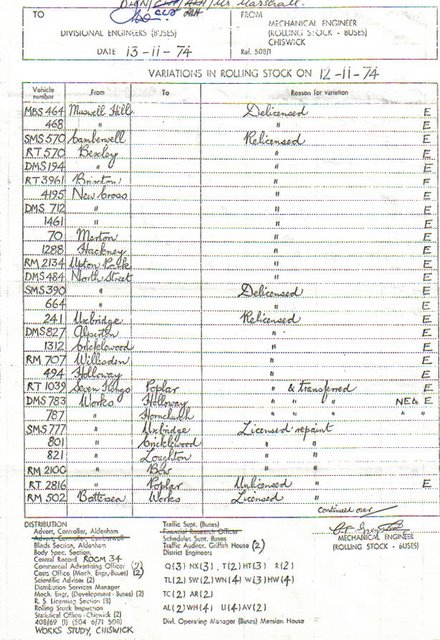 Mr. Marshall.
TO FROM
DIVISIONAL ENGINEERS (BUSES) MECHANICAL ENGINEER
(ROLLING STOCK - BUSES)
CHISWICK
DATE 13-11-74 Ref. 508/1
VARIATIONS IN ROLLING STOCK ON 12-11-74
Vehicle number From To Reason for variation
MBS 464 Muswell Hill Delicensed E
468 " " E
SMS 570 Camberwell Relicensed E
RT 570 Bexley " E
DMS 194 " " E
RT 3961 Brixton " E
4195 New Cross " E
DMS 712 " " E
1461 " " E
70 Merton " E
1288 Hackney " E
RM 2134 Upton Park " E
DMS 484 North Street " E
SMS 390 " Delicensed E
664 " " E
241 Uxbridge Relicensed E
DMS 827 Alperton " E
1312 Cricklewood " E
RM 707 Willesden " E
494 Holloway " E
RT 1039 Seven Kings Poplar " & transferred E
DMS 783 Works Holloway " " " NEW E
787 " Hornchurch " " " " "
SMS 777 " Uxbridge Licensed repaint
801 " Cricklewood " "
821 " Loughton " "
RM 2100 " Bow " "
RT 2816 " Poplar Unlicensed " E
RM 502 Battersea Works Licensed " E
continued over
DISTRIBUTION
Advert. Controller, Aldenham
Advert. Controller, Camberwell
Blinds Section, Aldenham
Body Spec. Section,
Central Record ROOM 34
Commercial Advertising Officer (2)
Costs Office (Mech. Engr.-Buses) (2)
Scientific Adviser (2)
Distribution Services Manager
Mech. Engr. (Development - Buses) (2)
R. S. Licensing Section (3)
Rolling Stock Inspection
Statistical Office - Chiswick (2)
408/69 (1) (504 6/71 508)
WORKS STUDY, CHISWICK
Traffic Supt. (Buses)
Financial Research Officer
Schedules Supt. Buses
Traffic Auditor, Griffith House (2)
District Engineers
Q(3) NX(3) T(2) HT(3) R(2)
TL(2) SW(2) WN(4) W(3) HW(4)
TC(2) AR(2)
AL(2) WH(4) U(4) AV(2)
Divl. Operating Manager (Buses) Mansion House
MECHANICAL ENGINEER
(ROLLING STOCK - BUSES)